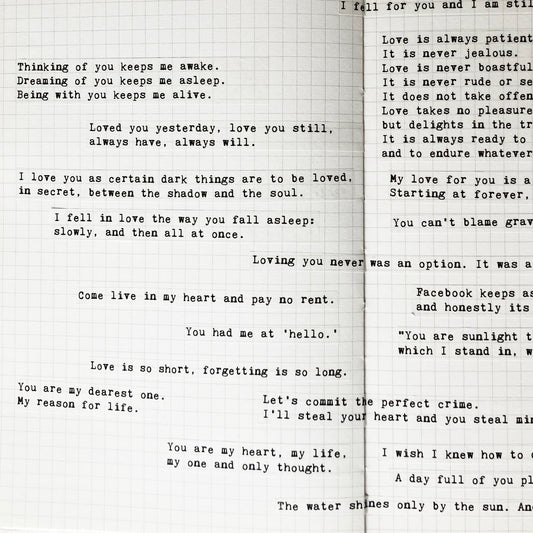 I fell for you and I am still
Thinking of you keeps me awake.
Dreaming of you keeps me asleep.
Being with you keeps me alive.
Loved you yesterday, love you still,
always have, always will.
I love you as certain dark things are to be loved,
in secret, between the shadow and the soul.
I fell in love the way you fall asleep:
slowly, and then all at once.
Loving you never was an option. It was a
Come live in my heart and pay no rent.
You had me at 'hello.'
Love is so short, forgetting is so long.
You are my dearest one.
My reason for life.
Let's commit the perfect crime.
I'll steal your heart and you steal
You are my heart, my life,
my one and only thought.
The water shines only by the sun.
Love is always patient
It is never jealous.
Love is never boastful
It is never rude or
It does not take
Love takes no pleasure
but delights in the
It is always ready to
and to endure whatever
My love for you is a
Starting at forever,
You can't blame
Facebook keeps
and honestly its
"You are sunlight
which I stand in,
I wish I knew how to
A day full of you